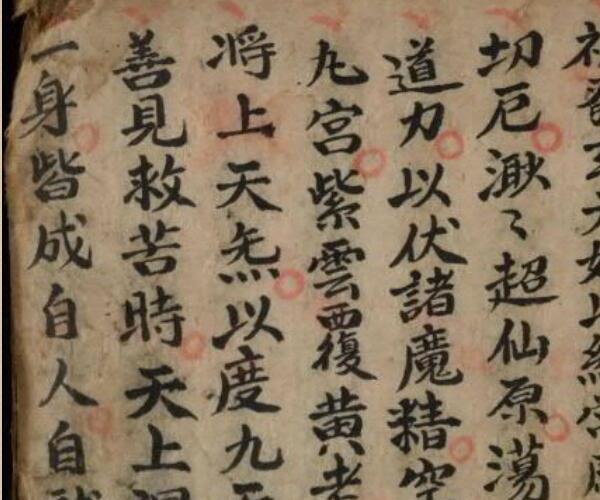 切厄渺〻超仙原蕩
道力以伏諸魔精空
九宮紫雲覆黄老
将上天炁以度九天
善見救苦時天上
一身皆成自人自